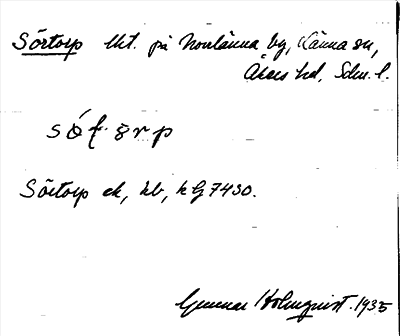 Sörtorp lht. på Norrlänna by, Länna sn,
Åkers hd, Sdm. l.
Sörtorp ek, hb, k G7430.
Gunnar Holmquist. 1935